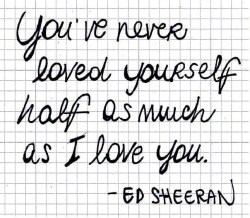 You've never
loved yourself
half as much
as I love you.
- ED SHEERAN